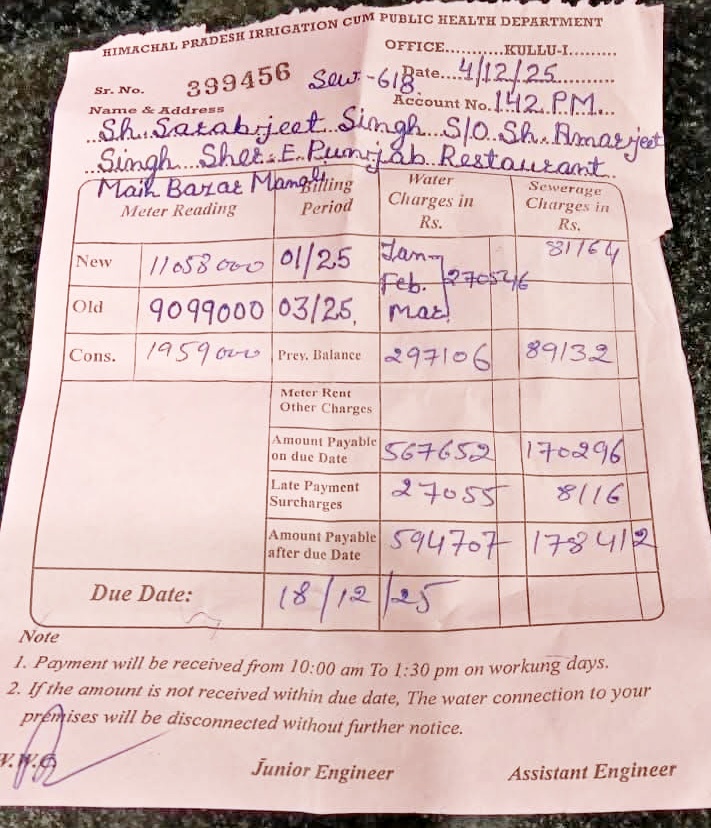 HIMACHAL PRADESH IRRIGATION CUM PUBLIC HEALTH DEPARTMENT
OFFICE..........KULLU-I.........
Sr. No. 399456 Sew-618 Date...4/12/25
Account No. 142 P.M...
Name & Address
Sh. Sarabjeet Singh S/O Sh. Amarjeet
Singh Sher.E.Punjab Restaurant
Main Bazar
Meter Reading Billing Period Water Charges in Rs. Sewerage Charges in Rs.
New 11058000 01/25 Jan Feb. Mar. 270546 81164
Old 9099000 03/25
Cons. 1959000 Prev. Balance 297106 89132
Meter Rent
Other Charges
Amount Payable on due Date 567652 170296
Late Payment Surcharges 27055 8116
Amount Payable after due Date 594707 178412
Due Date: 18/12/25
Note
1. Payment will be received from 10:00 am To 1:30 pm on workung days.
2. If the amount is not received within due date, The water connection to your
premises will be disconnected without further notice.
Junior Engineer Assistant Engineer